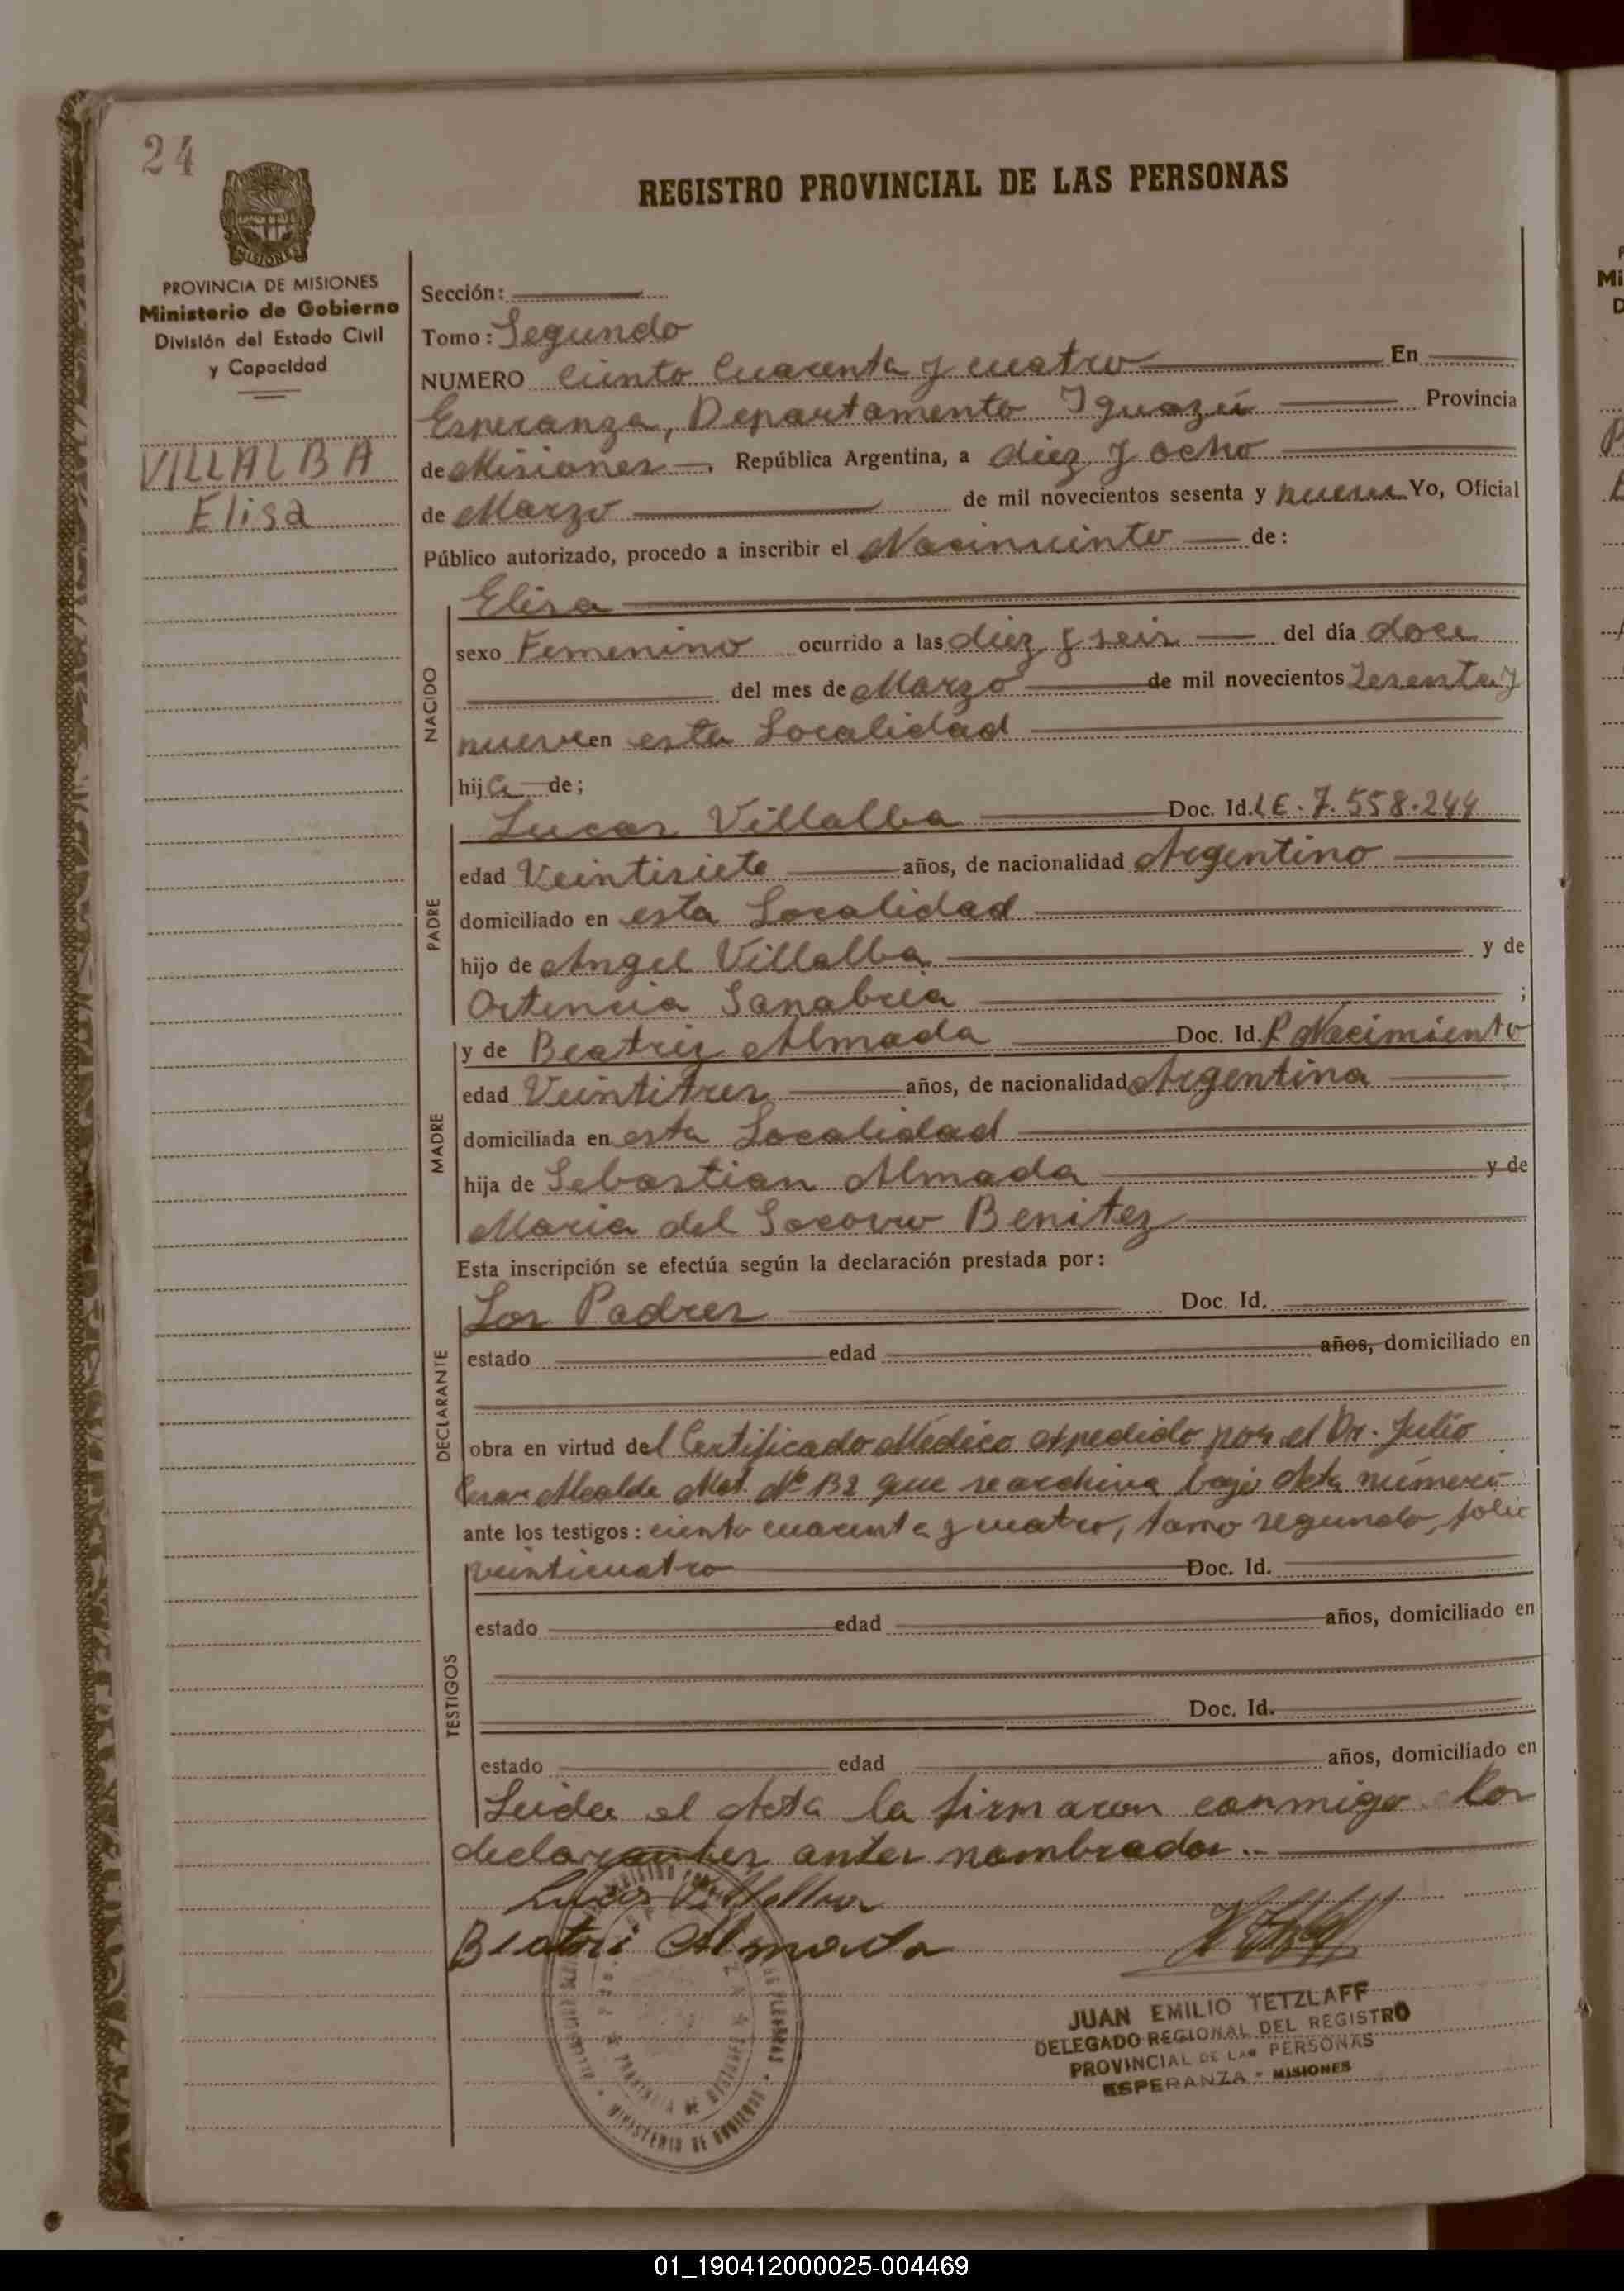 24
MISIONES
PROVINCIA DE MISIONES
Ministerio de Gobierno
División del Estado Civil
y Capacidad
VILLALBA
Elisa
REGISTRO PROVINCIAL DE LAS PERSONAS
Sección:
Tomo: Segundo
NUMERO Ciento Cuarenta y cuatro En
Esperanza, Departamento Iguazú Provincia
de Misiones República Argentina, a diez y ocho
de Marzo de mil novecientos sesenta y nueve Yo, Oficial
Público autorizado, procedo a inscribir el Nacimiento de:
NACIDO
Elisa
sexo Femenino ocurrido a las diez y seis del día doce
del mes de Marzo de mil novecientos Sesenta y
nueve en esta Localidad
hija de;
PADRE
Lucas Villalba Doc. Id. L E. 7.558.244
edad Veintisiete años, de nacionalidad Argentino
domiciliado en esta Localidad
hijo de Angel Villalba y de
Ortencia Sanabria ;
MADRE
y de Beatriz Almada Doc. Id. P. Nacimiento
edad Veintitres años, de nacionalidad Argentina
domiciliada en esta Localidad
hija de Sebastian Almada y de
Maria del Socorro Benitez
Esta inscripción se efectúa según la declaración prestada por:
DECLARANTE
Los Padres Doc. Id.
estado edad años, domiciliado en
obra en virtud del Certificado Médico expedido por el Dr. Julio
Cesar Mat. Nº 132 que se archiva bajo Acta número
ante los testigos: ciento cuarenta y cuatro, tomo segundo, folio
veinticuatro Doc. Id.
TESTIGOS
estado edad años, domiciliado en
Doc. Id.
estado edad años, domiciliado en
Leida el Acta la firmaron conmigo los
declarantes antes nombrados..
Lucas Villalba
Beatri Almada
PROVINCIA DE MISIONES
MINISTERIO DE GOBIERNO
JUAN EMILIO TETZLAFF
DELEGADO REGIONAL DEL REGISTRO
PROVINCIAL DE LAS PERSONAS
ESPERANZA - MISIONES
01_190412000025-004469